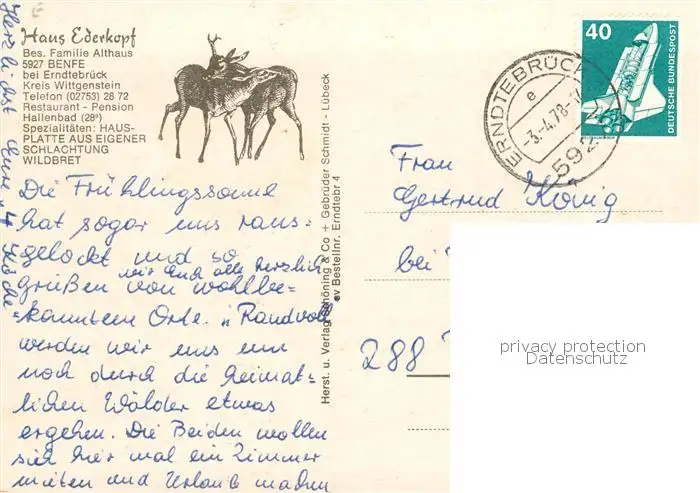 Haus Ederkopf
Bes. Familie Althaus
5927 BENFE
bei Erndtebrück
Kreis Wittgenstein
Telefon (02753) 28 72
Restaurant - Pension
Hallenbad (28°)
Spezialitäten: HAUS-
PLATTE AUS EIGENER
SCHLACHTUNG
WILDBRET
Die Frühlingssonne
hat sogar uns raus-
gelockt und so
wir Euch alle herzlich
grüßen von wohlbe-
=kanntem Orte. "Randvoll"
werden wir uns nun
noch durch die heimat=
lichen Wälder etwas
ergehen. Die Beiden wollen
sich hier mal ein Zimmer
mieten und Urlaub machen
Herzlichst Eure 4
Herst. u. Verlag Schöning & Co + Gebrüder Schmidt - Lübeck
Bestellnr. Erndtebr 4
40
DEUTSCHE BUNDESPOST
ERNDTEBRÜCK
e
-3.-4.78-
592
Frau
Gertrud König
bei
288
privacy protection
Datenschutz